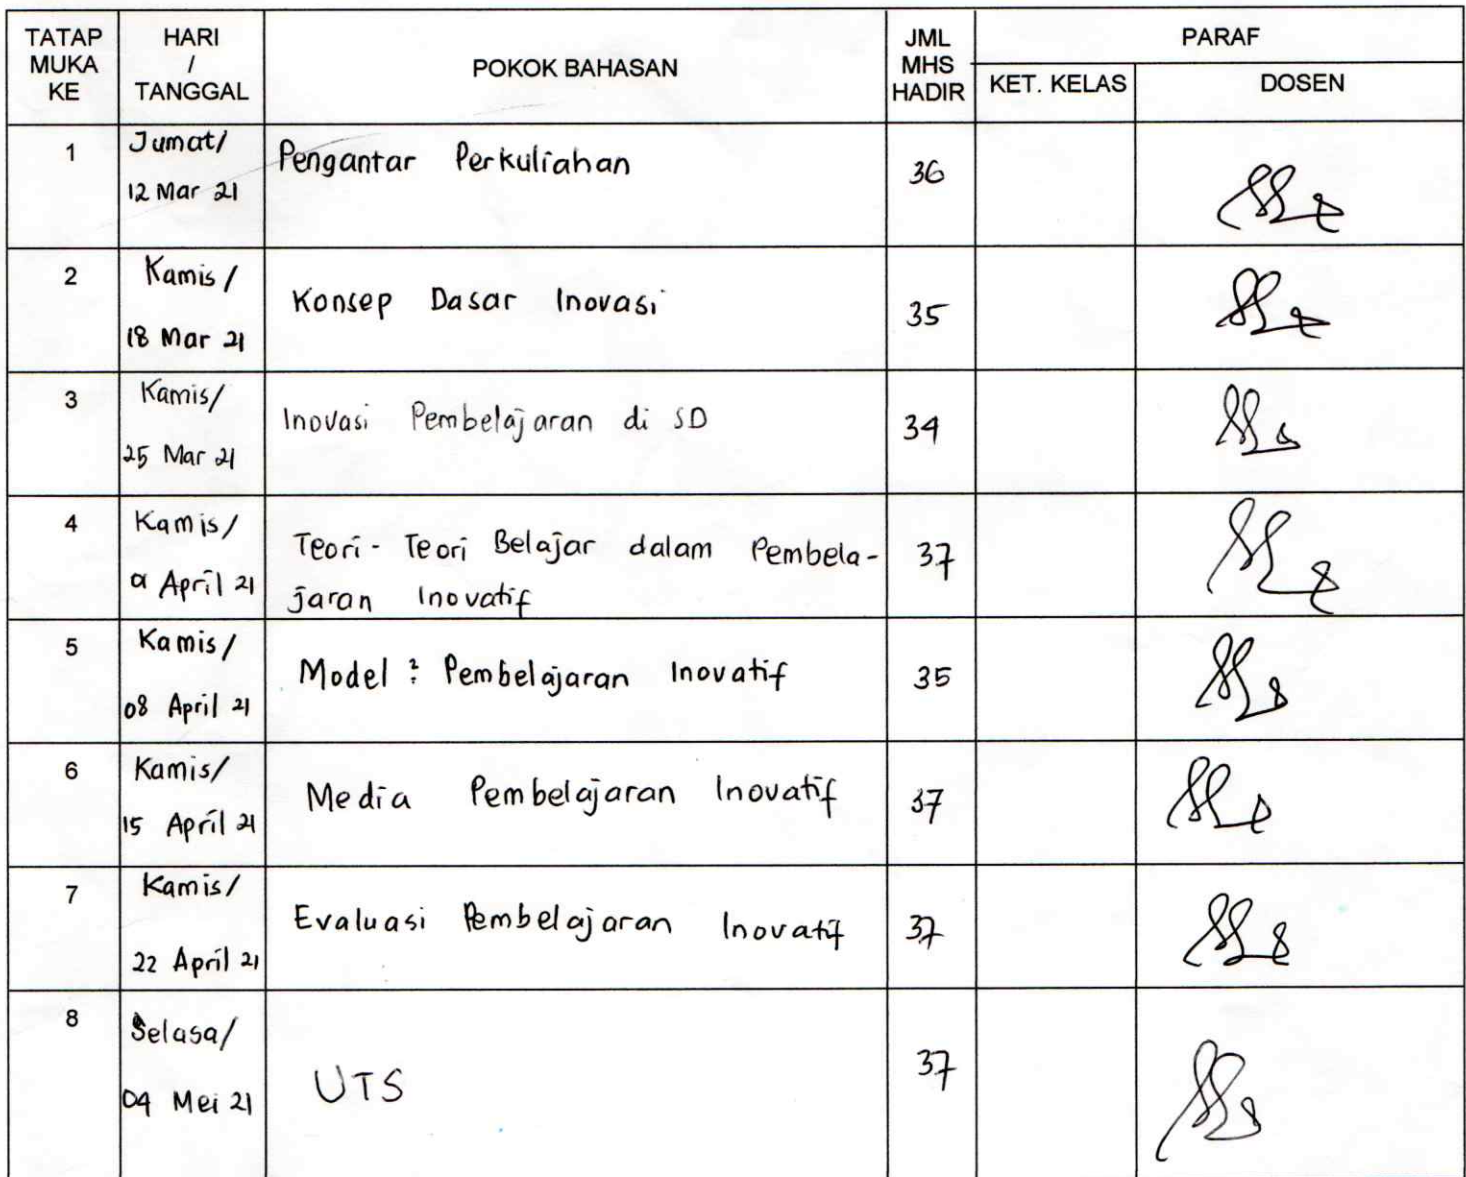 TATAP MUKA KE
HARI / TANGGAL
POKOK BAHASAN
JML MHS HADIR
PARAF
KET. KELAS
DOSEN
1
Jumat/
12 Mar 21
Pengantar Perkuliahan
36
2
Kamis/
18 Mar 21
Konsep Dasar Inovasi
35
3
Kamis/
25 Mar 21
Inovasi Pembelajaran di SD
34
4
Kamis/
April 21
Teori-Teori Belajar dalam Pembela-
jaran Inovatif
37
5
Kamis/
08 April 21
Model² Pembelajaran Inovatif
35
6
Kamis/
15 April 21
Media Pembelajaran Inovatif
37
7
Kamis/
22 April 21
Evaluasi Pembelajaran Inovatif
37
8
Selasa/
04 Mei 21
UTS
37